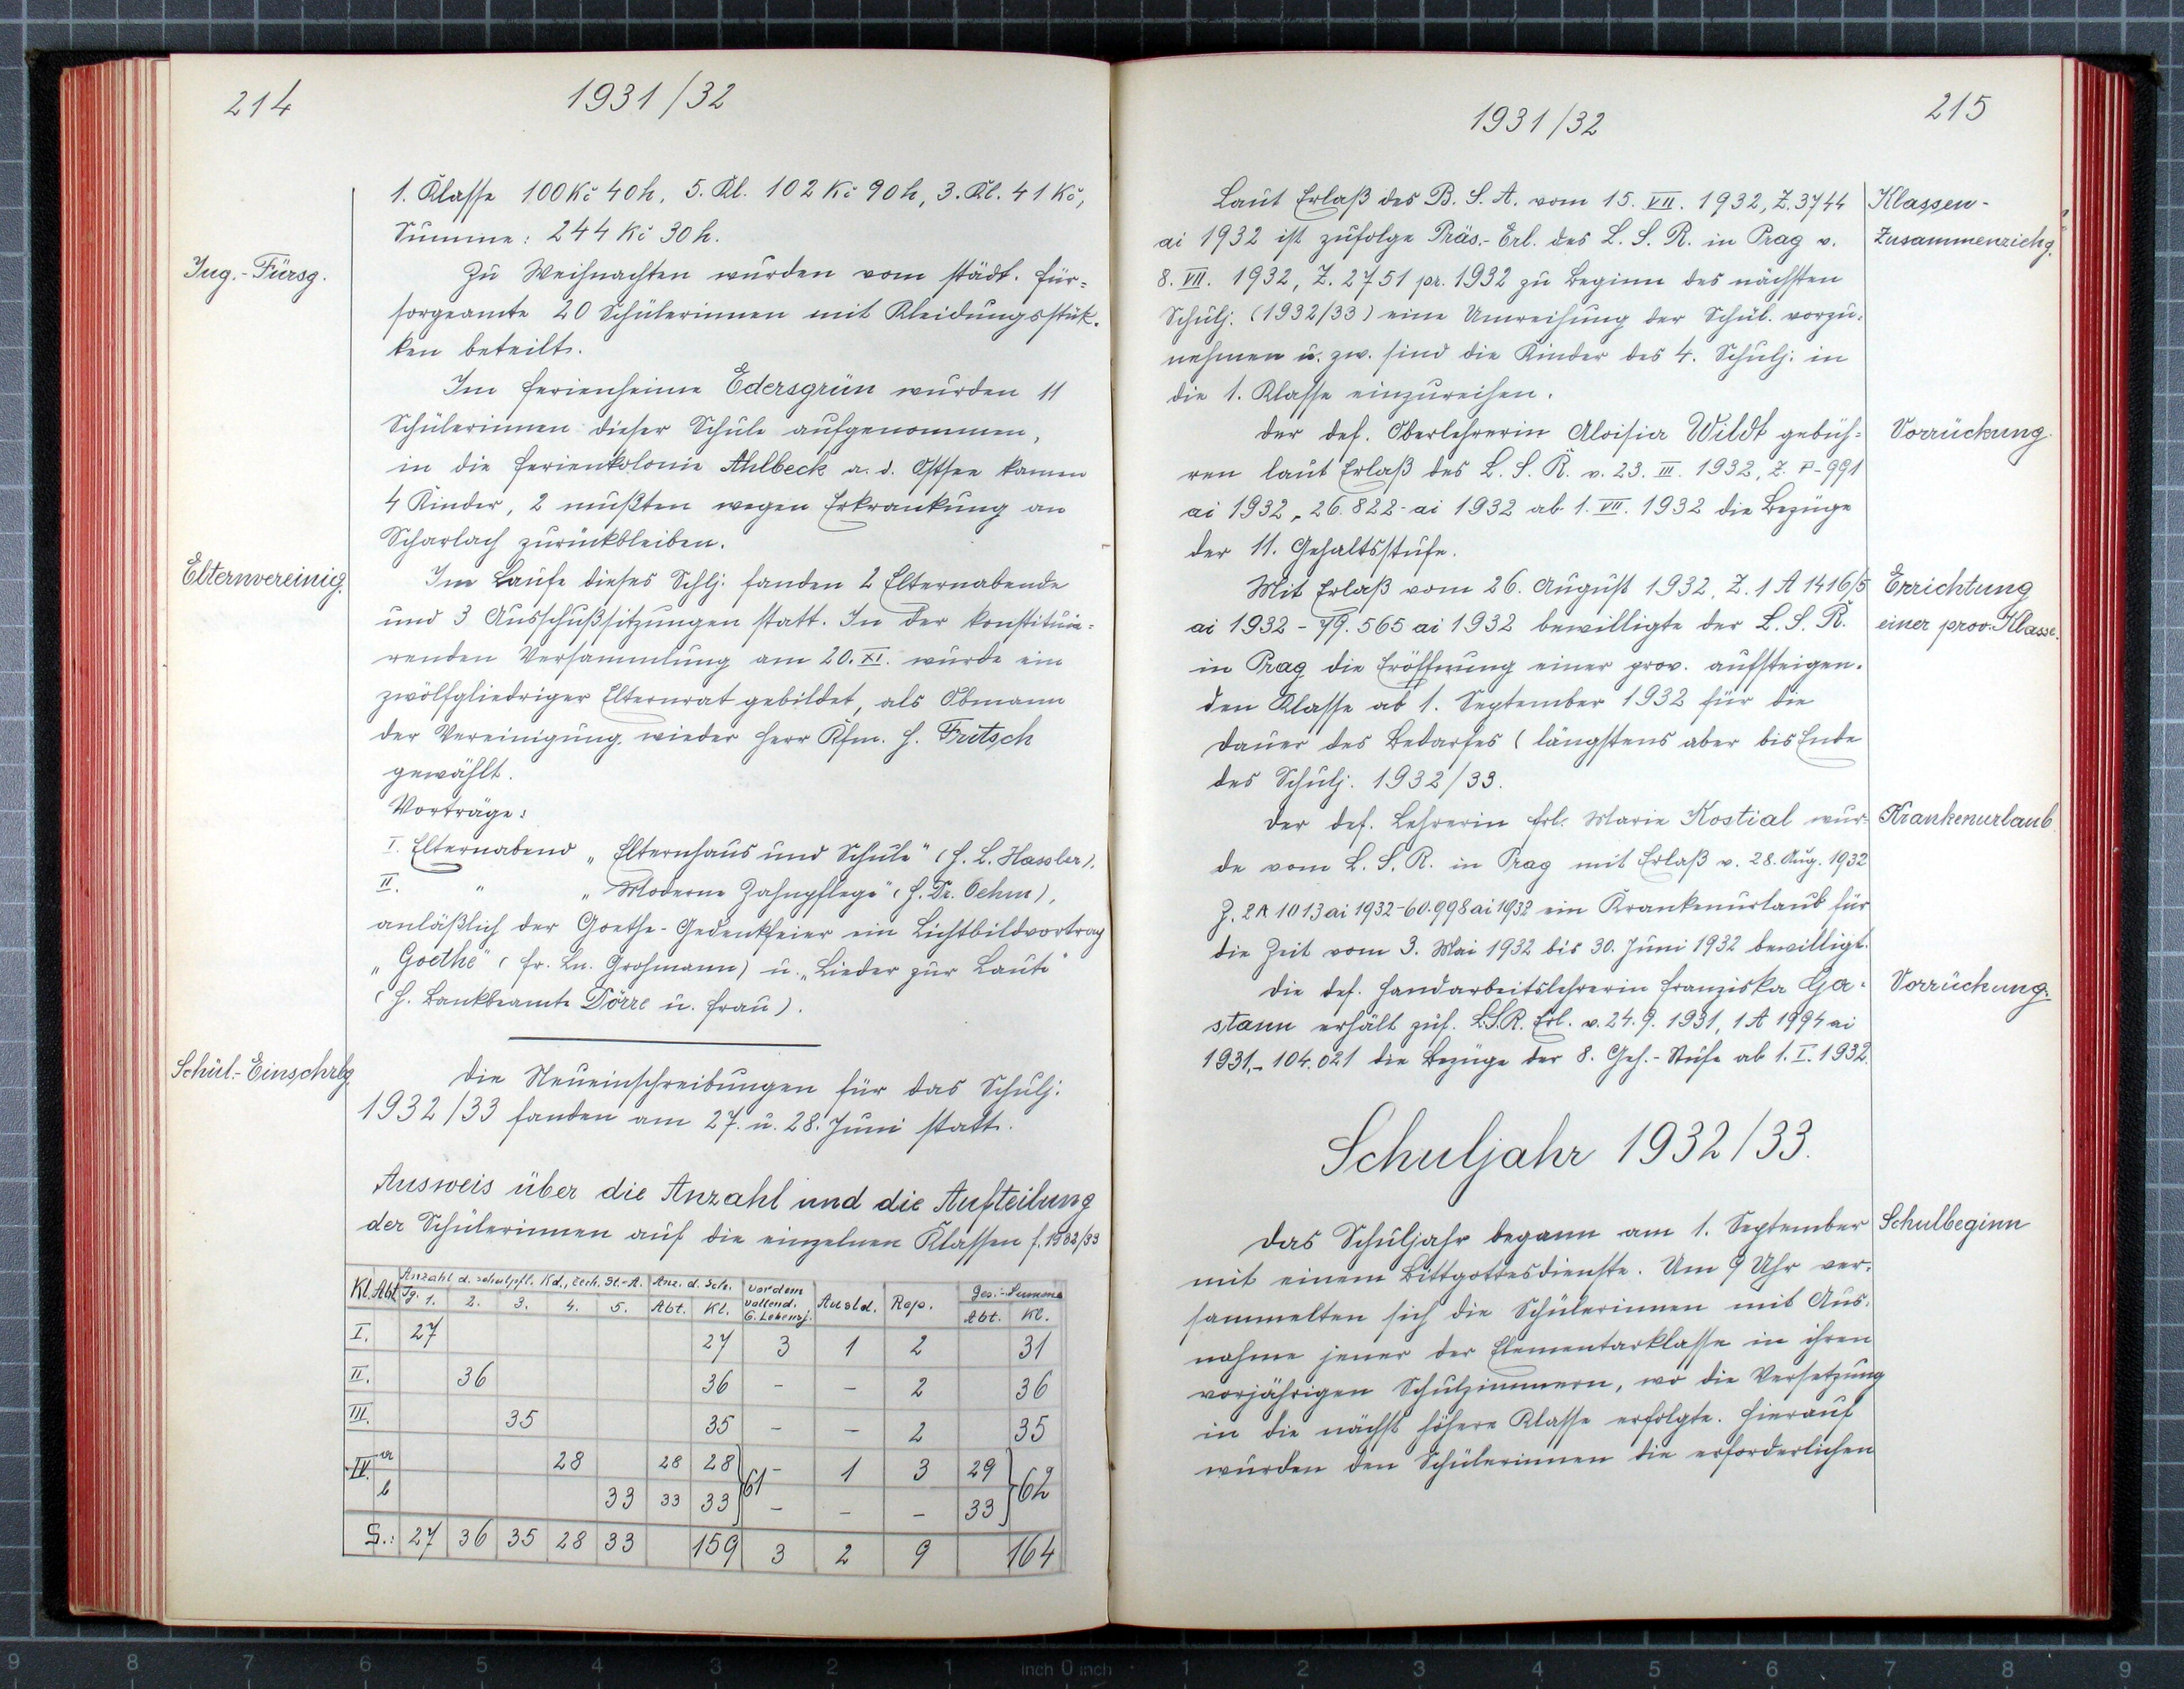 214
1931/32
1. Klasse 100 Kč 40 h, 5. Kl. 102 Kč 90 h, 3. Kl. 41 Kč,
Summe: 244 Kč 30 h.
Jug.-Fürsg.
Zu Weihnachten wurden vom städt. Für-
sorgeamte 20 Schülerinnen mit Kleidungsstük-
ken beteilt.
Im Ferienheime Edersgrün wurden 11
Schülerinnen dieser Schule aufgenommen,
in die Ferienkolonie Ahlbeck a. d. Ostsee kamen
4 Kinder, 2 mußten wegen Erkrankung an
Scharlach zurückbleiben.
Elternvereinig.
Im Laufe dieses Schlj. fanden 2 Elternabende
und 3 Ausschußsitzungen statt. In der konstituie-
renden Versammlung am 20. XI. wurde ein
zwölfgliedriger Elternrat gebildet, als Obmann
der Vereinigung wieder Herr Kfm. H. Fritsch
gewählt.
Vorträge:
I. Elternabend „Elternhaus und Schule" (H. L. Hassler),
II. " „Moderne Zahnpflege" (H. Dr. Oehm),
anläßlich der Goethe-Gedenkfeier ein Lichtbildvortrag
„Goethe" (Fr. Ln. Grohmann) u. „Lieder zur Laute"
(H. Bankbeamte Dörre u. Frau).
Schül.-Einschrbg
Die Neueinschreibungen für das Schulj.
1932/33 fanden am 27. u. 28. Juni statt.
Ausweis über die Anzahl und die Aufteilung
der Schülerinnen auf die einzelnen Klassen f. 1932/33
Kl. Abt. Anzahl d. schulpfl. Kd., tsch. St.-A. Anz. d. Sch. vor dem vollend. 6. Lebensj. Ausld. Rep. Ges.-Summe
Jg. 1. 2. 3. 4. 5. Abt. Kl. Abt. Kl.
I. 27 27 3 1 2 31
II. 36 36 - - 2 36
III. 35 35 - - 2 35
IV. a 28 28 28 61 - 1 3 29 62
b 33 33 33 - - - 33
S.: 27 36 35 28 33 159 3 2 9 164
1931/32
215
Laut Erlaß des B. S. A. vom 15. VII. 1932, Z. 3744
Klassen-
ai 1932 ist zufolge Präs.-Erl. des L. S. R. in Prag v.
Zusammenziehg.
8. VII. 1932, Z. 2751 pr. 1932 zu Beginn des nächsten
Schulj. (1932/33) eine Umreihung der Schül. vorzu-
nehmen u. zw. sind die Kinder des 4. Schulj. in
die 1. Klasse einzureihen.
Der def. Oberlehrerin Aloisia Wildt gebüh-
Vorrückung.
ren laut Erlaß des L. S. R. v. 23. III. 1932, Z. P-991
ai 1932, 26.822-ai 1932 ab 1. VII. 1932 die Bezüge
der 11. Gehaltsstufe.
Mit Erlaß vom 26. August 1932, Z. 1 A 1416/5
Errichtung
ai 1932 - 79.565 ai 1932 bewilligte der L. S. R.
einer prov. Klasse.
in Prag die Eröffnung einer prov. aufsteigen-
den Klasse ab 1. September 1932 für die
Dauer des Bedarfes (längstens aber bis Ende
des Schulj. 1932/33.
Der def. Lehrerin Frl. Marie Kostial wur-
Krankenurlaub
de vom L. S. R. in Prag mit Erlaß v. 28. Aug. 1932
Z. 2A 1013 ai 1932-60.998 ai 1932 ein Krankenurlaub für
die Zeit vom 3. Mai 1932 bis 30. Juni 1932 bewilligt.
Die def. Handarbeitslehrerin Franziska Ga-
Vorrückung.
stann erhält zuf. L.S.R. Erl. v. 24. 9. 1931, 1 A 1994 ai
1931,- 104.021 die Bezüge der 8. Geh.-Stufe ab 1. I. 1932.
Schuljahr 1932/33.
Das Schuljahr begann am 1. September
Schulbeginn
mit einem Bittgottesdienste. Um 9 Uhr ver-
sammelten sich die Schülerinnen mit Aus-
nahme jener der Elementarklasse in ihren
vorjährigen Schulzimmern, wo die Versetzung
in die nächst höhere Klasse erfolgte. Hierauf
wurden den Schülerinnen die erforderlichen
9 8 7 6 5 4 3 2 1 inch 0 inch 1 2 3 4 5 6 7 8 9